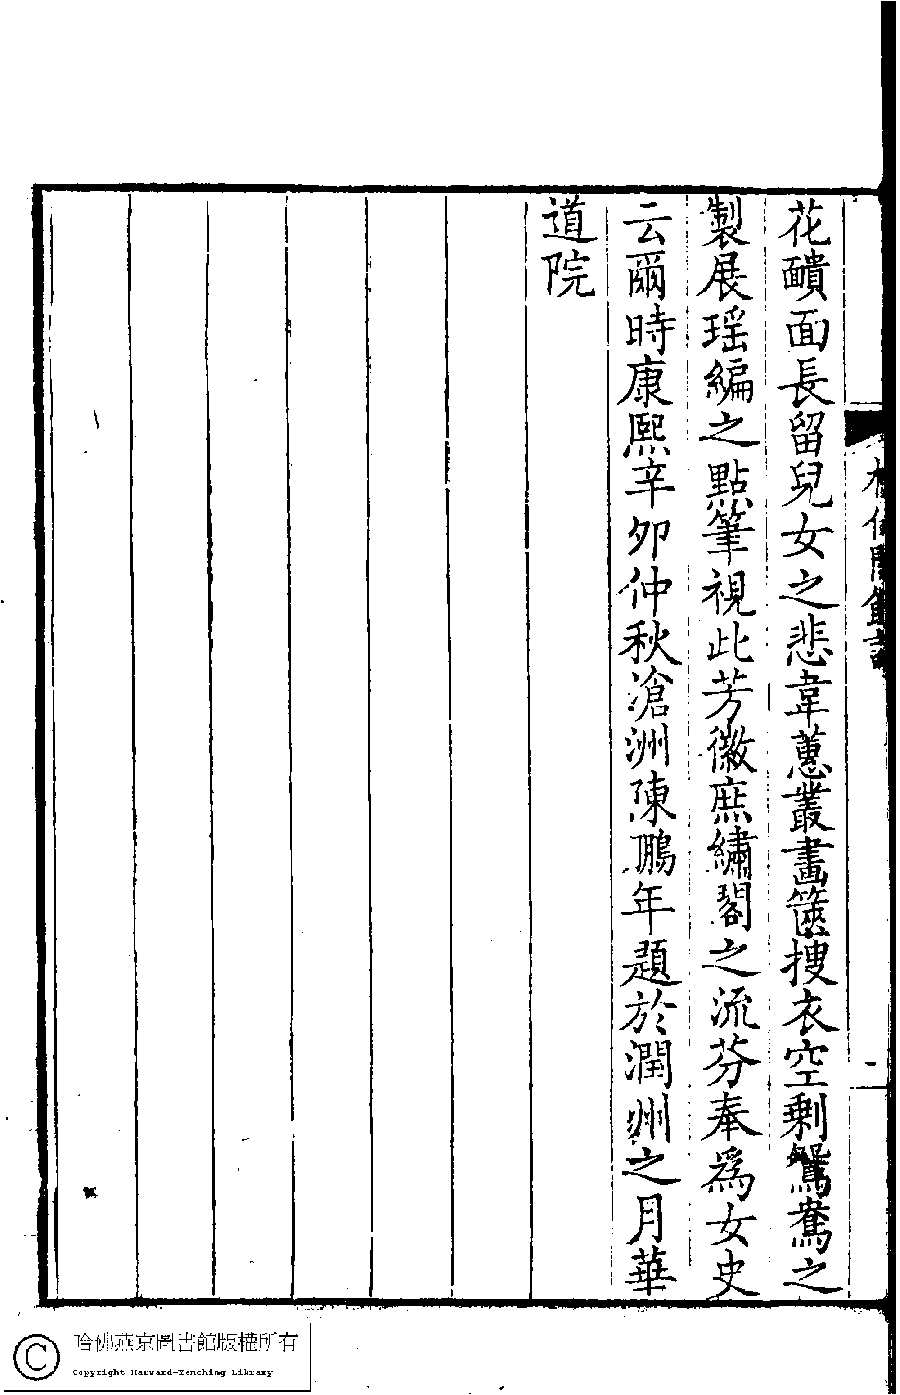 花靧面長留兒女之悲韋蕙叢畫篋搜衣空剩鴛鴦之
製展瑶編之點筆視此芳徽庶繡閣之流芬奉爲女史
云爾時康熙辛卯仲秋滄洲陳鵬年題於潤州之月華
道院
一
哈佛燕京圖書館版權所有
Copyright Harvard-Yenching Library